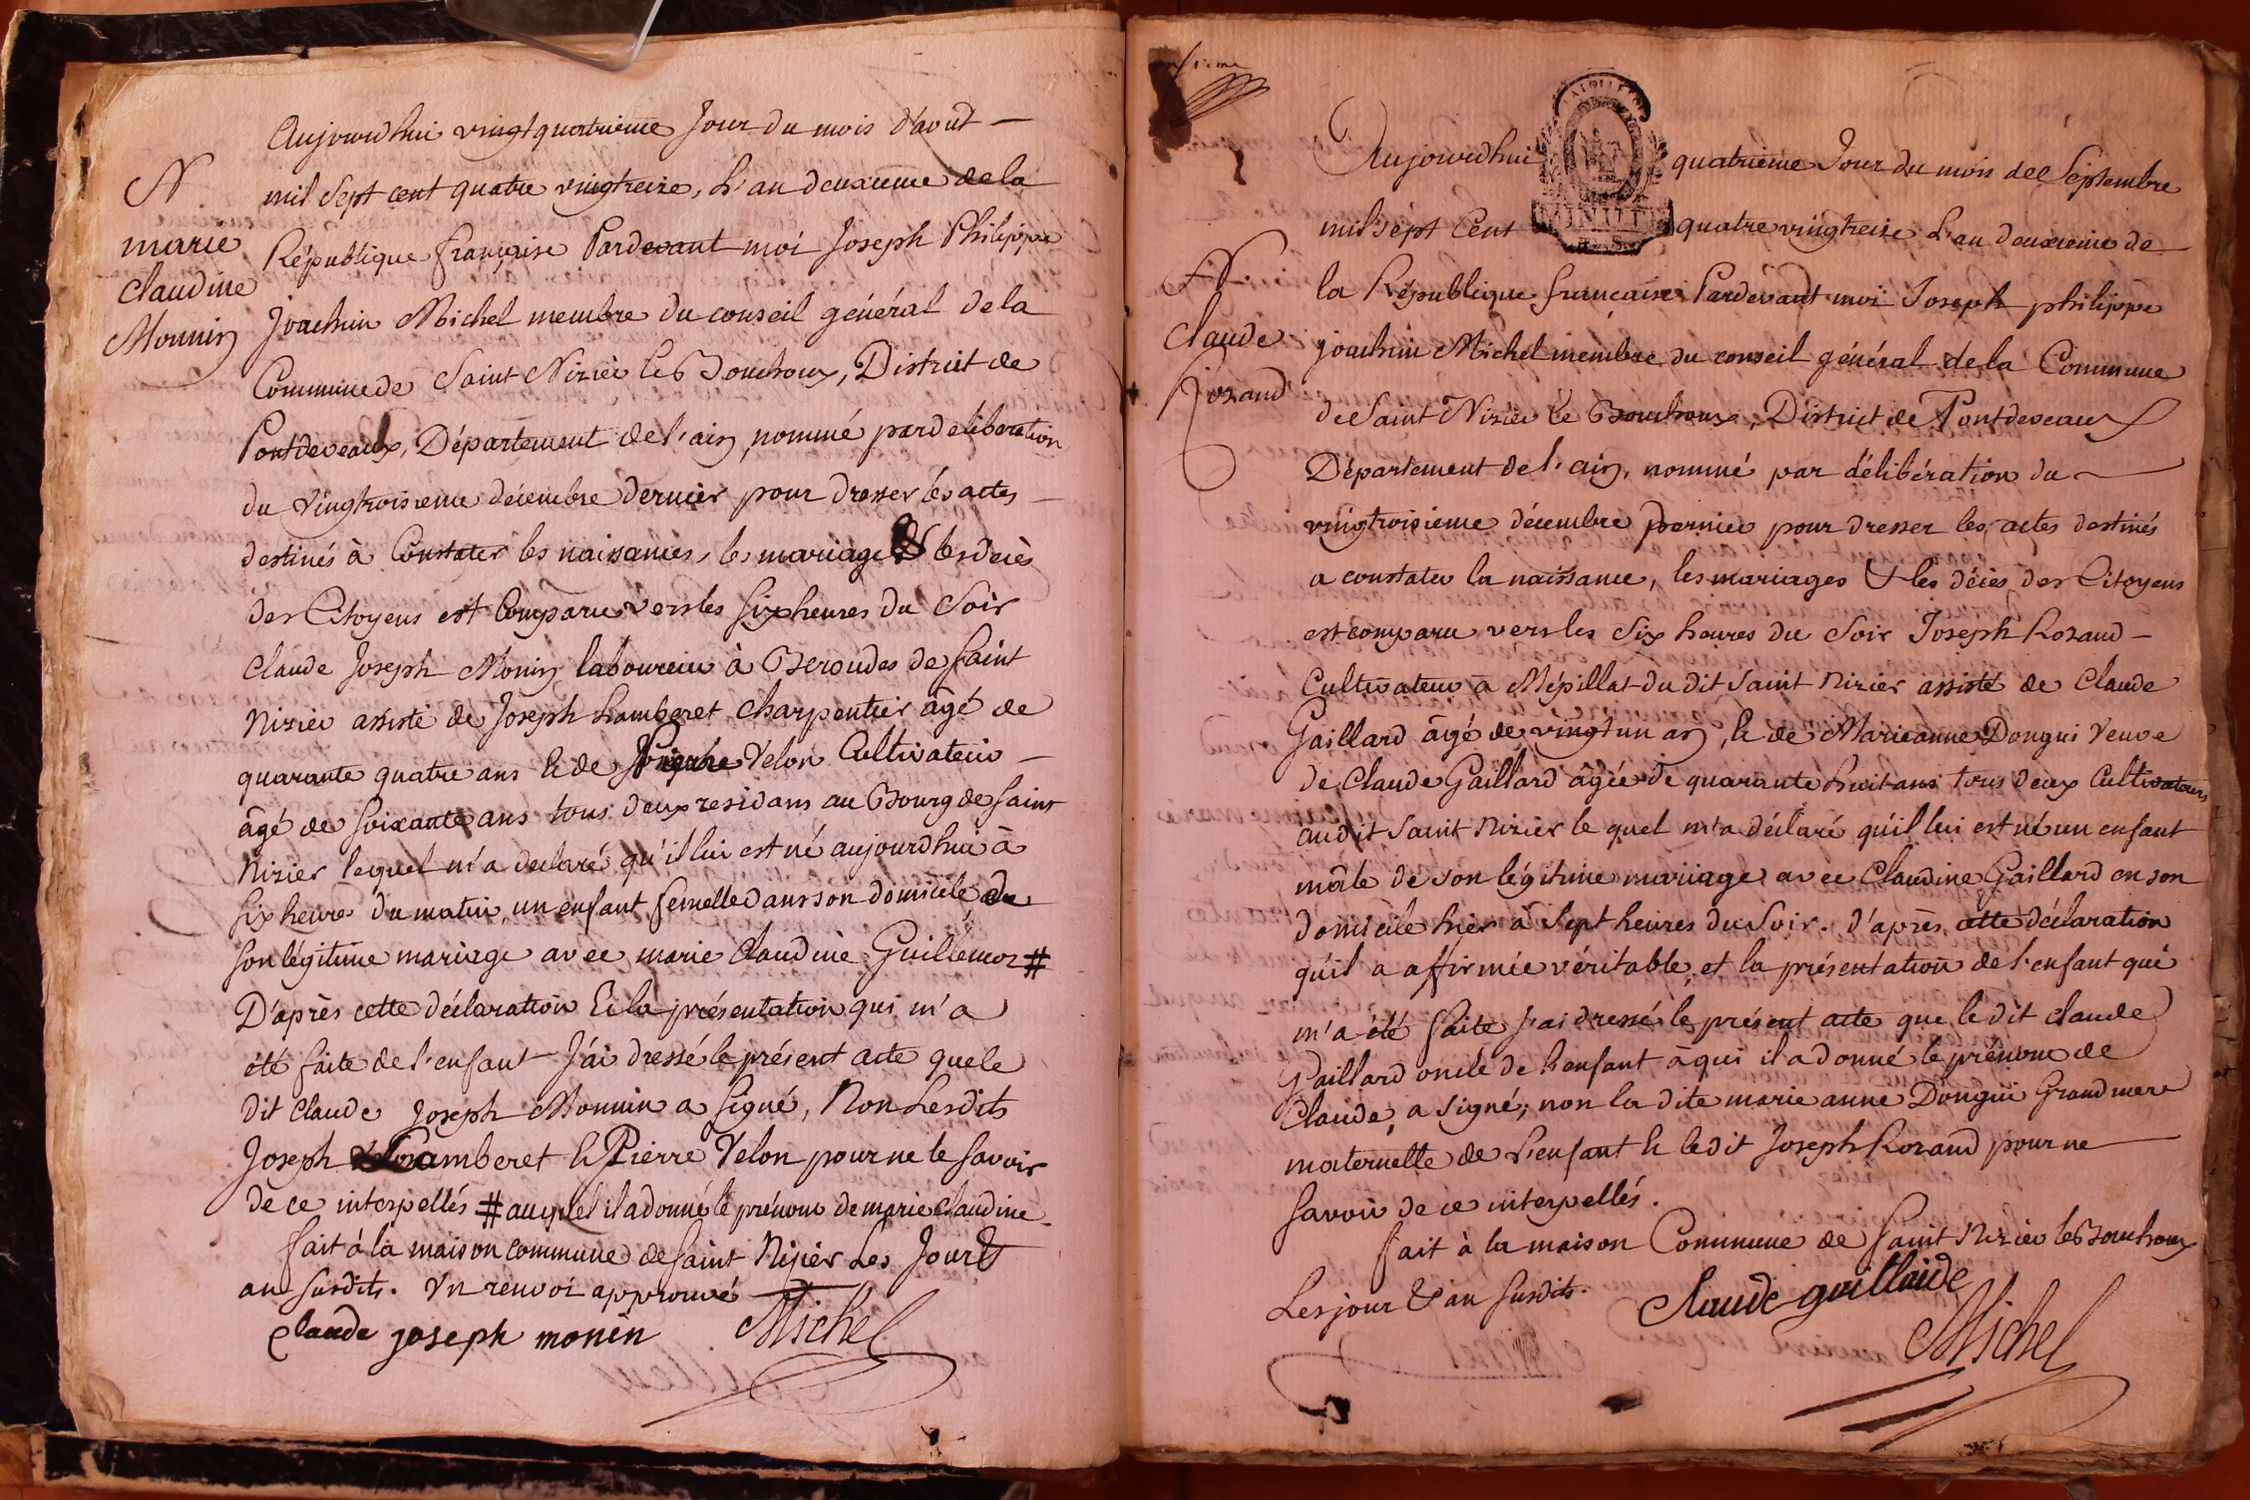 Aujourd'hui vingt quatrieme Jour du mois d'août
mil sept cent quatre vingtreize, L'an deuxieme de la
République française Pardevant moi Joseph Philippe
Joachim Michel membre du conseil général de la
Commune de Saint Nizier le Bouchoux, District de
Pontdeveaux, Département de l'ain, nommé par délibération
du vingtroisieme décembre dernier pour dresser les actes
destinés à Constater les naissances, les mariages & les décès
des Citoyens est Comparu vers les six heures du Soir
Claude Joseph Monin laboureur à Beroudes de saint
Nizier assisté de Joseph Chamberet Charpentier âgé de
quarante quatre ans & de Pierre Velon Cultivateur
âgé de soixante ans tous deux residans au Bourg de saint
Nizier lequel m'a declaré qu'il lui est né aujourd'hui à
six heures du matin, un enfant femelle dans son domicile, de
son légitime mariage avec marie Claudine Guillemoz #
D'après cette déclaration & la présentation qui m'a
été faite de l'enfant J'ai dressé le présent acte que le
dit Claude Joseph Monnin a signé, Non Lesdits
Joseph Chamberet & Pierre Velon pour ne le savoir
de ce interpellés # auquel il a donné le prénom de marie Claudine
fait à la maison commune de saint Nizier Les Jour &
an susdits. Un renvoi approuvé
claude joseph monin Michel
N.
marie
Claudine
Monnin
Aujourdhui quatrieme Jour du mois de Septembre
mil sept Cent quatre vingtreize L'an deuxieme de
la République française Pardevant moi Joseph philippe
joachim Michel membre du conseil général de la Commune
de Saint Nizier le Bouchoux, District de Pontdeveaux
Département de l'ain, nommé par délibération du
vingtroisieme décembre dernier pour dresser les actes destinés
a constater la naissance, les mariages & les décès des Citoyens
est comparu vers les six heures du Soir Joseph Rozand
Cultivateur à Mépillat du dit Saint Nizier assisté de Claude
Gaillard âgé de vingt un an, & de Marieanne Dongui Veuve
de Claude Gaillard âgée de quarante huit ans tous deux Cultivateurs
audit Saint Nizier le quel m'a déclaré qu'il lui est né un enfant
mâle de son légitime mariage avec Claudine Gaillard en son
domicile hier à sept heures du Soir. d'après cette déclaration
qu'il a affirmée véritable, et la présentation de l'enfant qui
m'a été faite j'ai dressé le présent acte que le dit claude
Gaillard oncle de l'enfant à qui il a donné le prénom de
Claude, a signé, non la dite marie anne Dongui Grand mere
maternelle de l'enfant & le dit Joseph Rozand pour ne
savoir de ce interpellés.
fait à la maison Commune de saint Nizier le Bouchoux
Les jour & an susdits.
Claude gaillaide
Michel
N.
Claude
Rozand
MINUTE